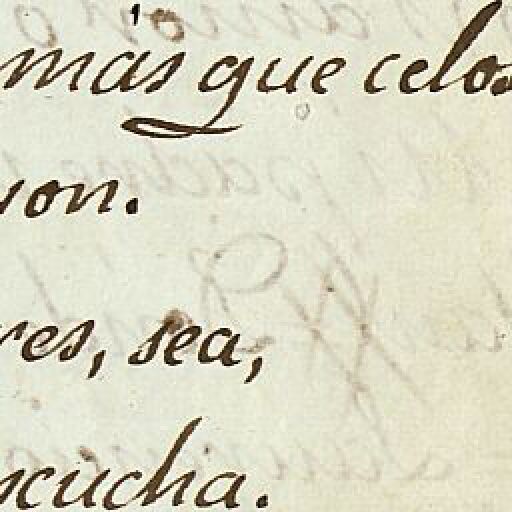 más que celos
von.
res, sea,
scucha.